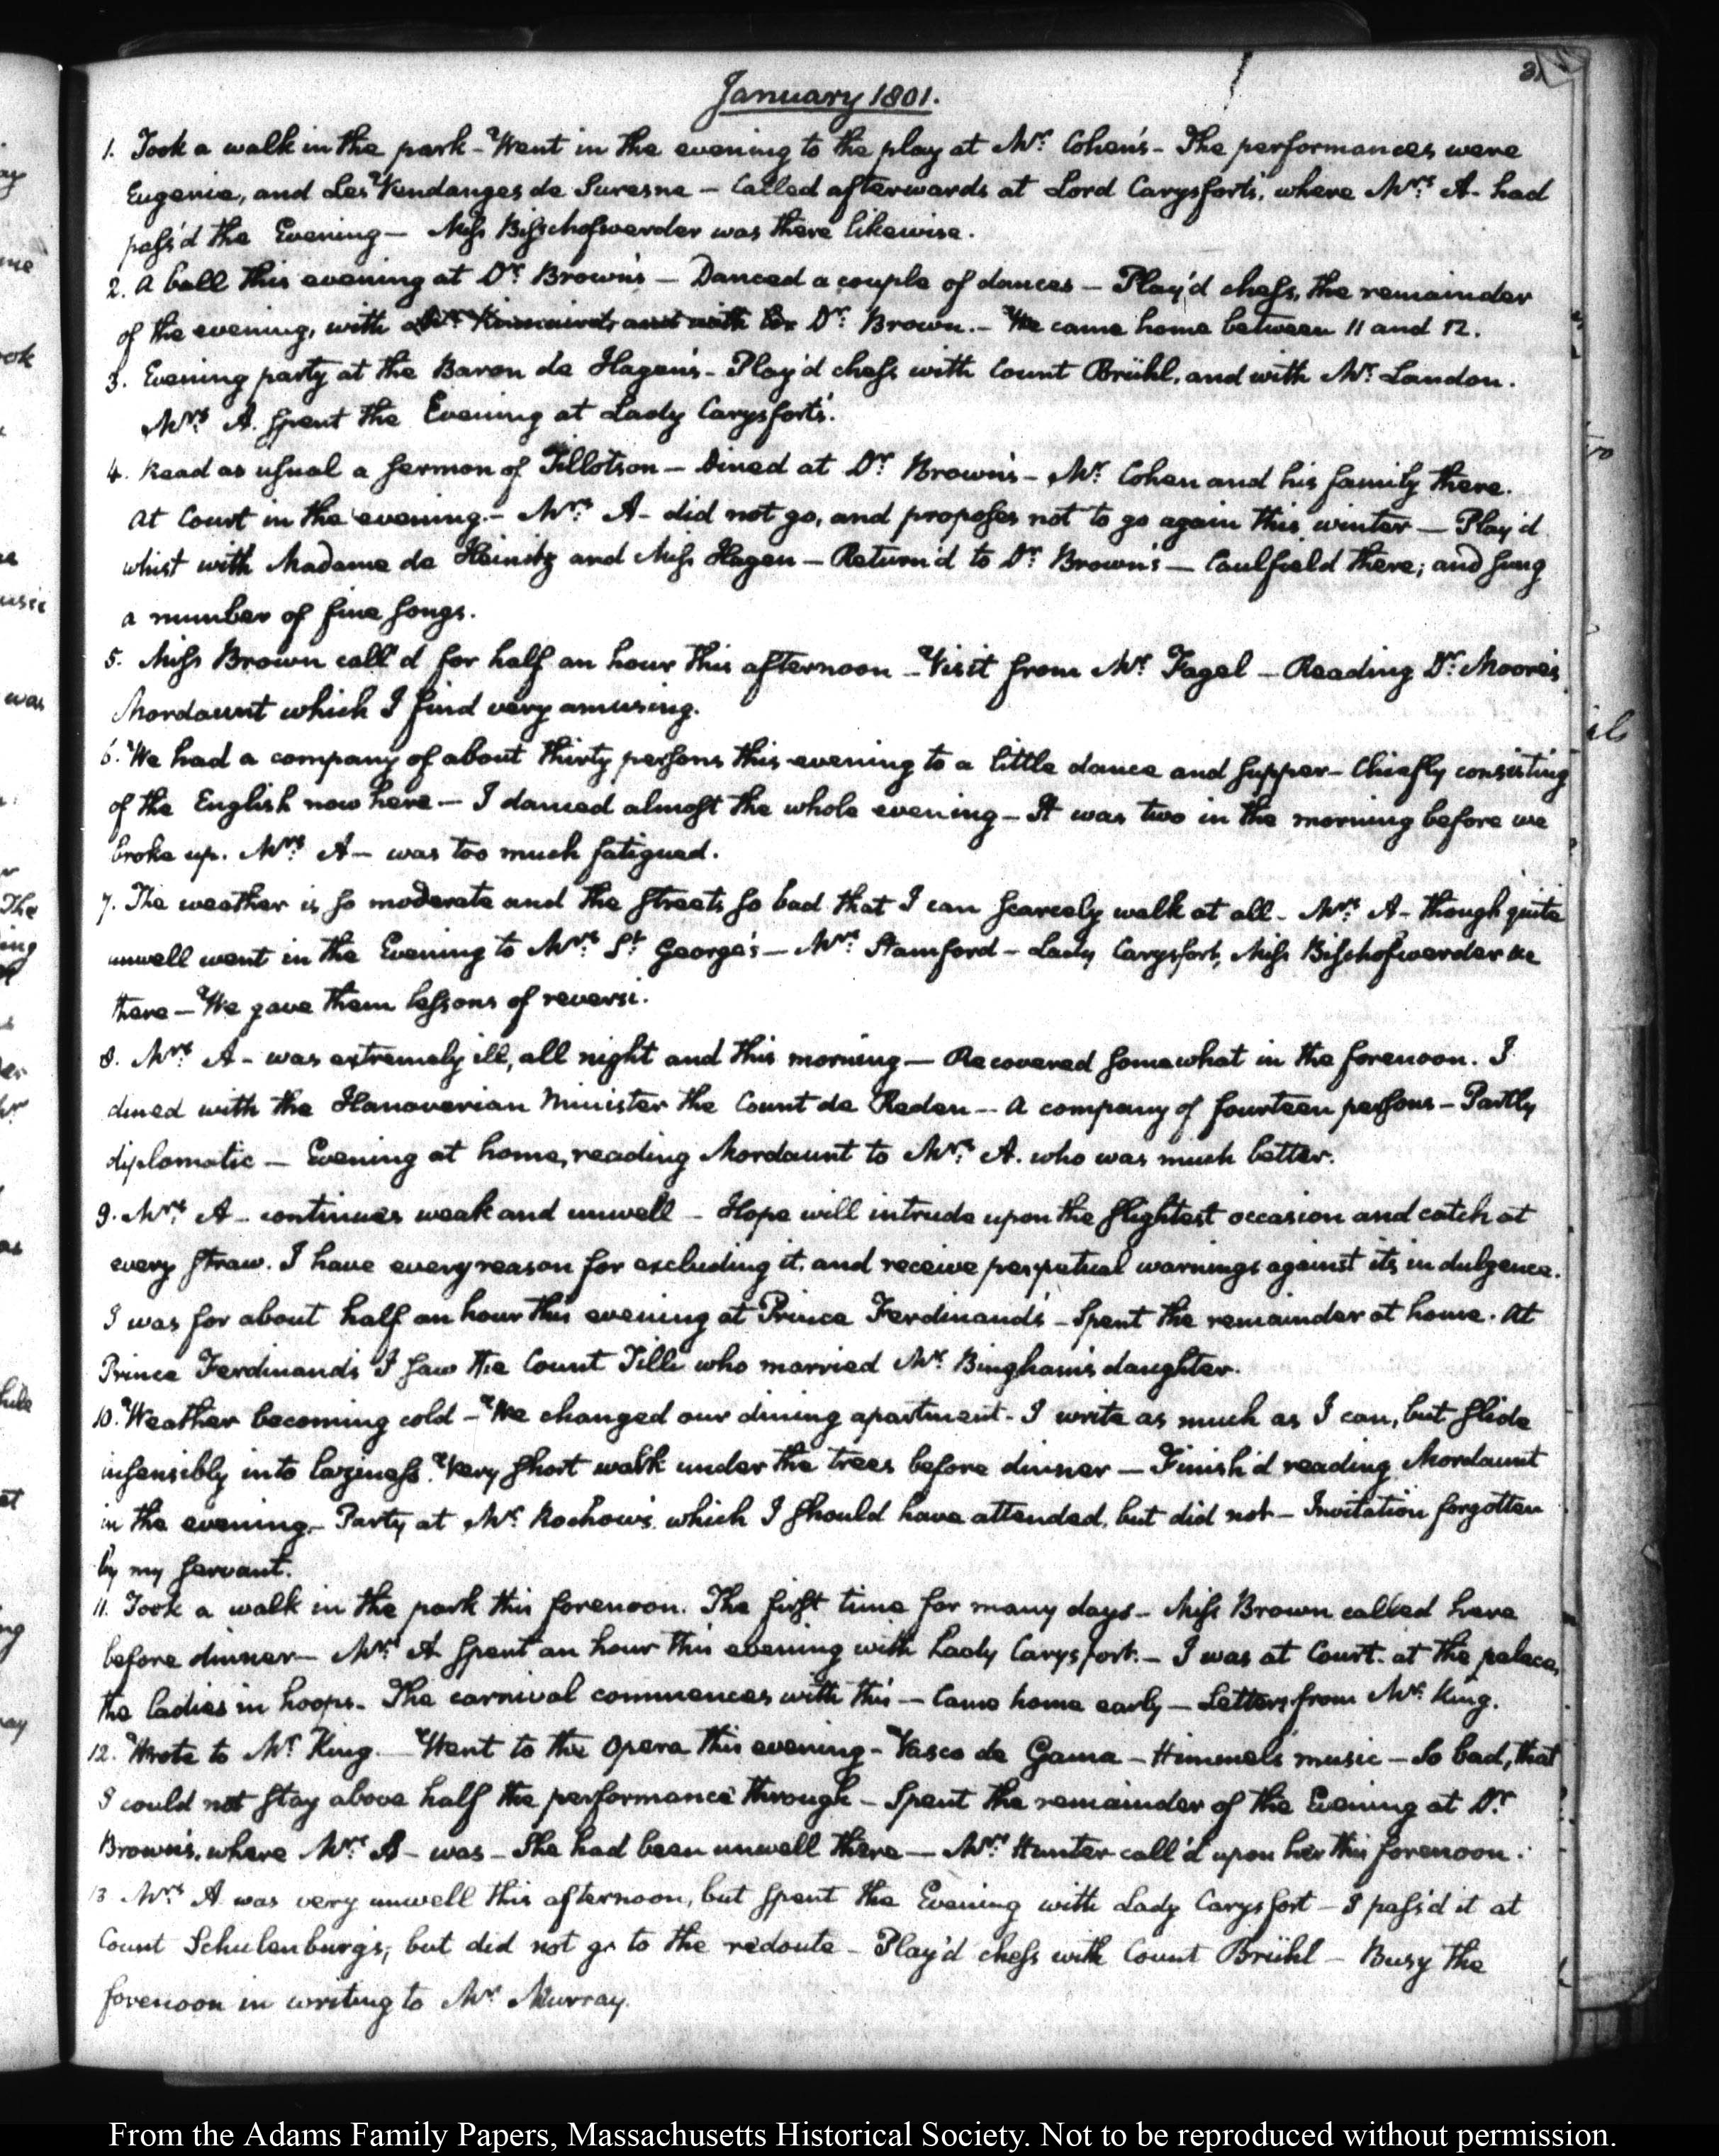 January 1801.
1. Took a walk in the park - Went in the evening to the play at Mr. Cohen's - The performances were
Eugenie, and Les Vendanges de Suresne - Called afterwards at Lord Carysfort's, where Mrs. A- had
pass'd the Evening - Miss Bischofswerder was there likewise.
2. A ball this evening at Dr. Brown's - Danced a couple of dances - Play'd chess, the remainder
of the evening, with Dr. Brown. - We came home between 11 and 12.
3. Evening party at the Baron de Hagen's - Play'd chess with Count Brühl, and with Mr. Landon.
Mrs. A. spent the Evening at Lady Carysfort's.
4. Read as usual a sermon of Tillotson - Dined at Dr. Brown's - Mr. Cohen and his family there.
At Court in the evening. - Mrs. A- did not go, and proposes not to go again this winter - Play'd
whist with Madame de Heinitz and Miss Hagen - Return'd to Dr. Brown's - Caulfield there; and sung
a number of fine songs.
5. Miss Brown call'd for half an hour this afternoon - Visit from Mr. Fagel - Reading Dr. Moore's
Mordaunt which I find very amusing.
6. We had a company of about thirty persons this evening to a little dance and supper - Chiefly consisting
of the English now here - I danced almost the whole evening - It was two in the morning before we
broke up. Mrs. A- was too much fatigued.
7. The weather is so moderate and the streets so bad that I can scarcely walk at all - Mrs. A- though quite
unwell went in the Evening to Mrs. St. George's - Mrs. Stamford - Lady Carysfort, Miss Bischofswerder &c
there - We gave them lessons of reversi.
8. Mrs. A- was extremely ill, all night and this morning - Recovered somewhat in the forenoon. I
dined with the Hanoverian Minister the Count de Reden - A company of fourteen persons - Partly
diplomatic - Evening at home, reading Mordaunt to Mrs. A. who was much better.
9. Mrs. A- continues weak and unwell - Hope will intrude upon the slightest occasion and catch at
every straw. I have every reason for excluding it, and receive perpetual warnings against its indulgence.
I was for about half an hour this evening at Prince Ferdinand's - Spent the remainder at home. At
Prince Ferdinand's I saw the Count Tilli who married Mr. Bingham's daughter.
10. Weather becoming cold - We changed our dining apartment - I write as much as I can, but slide
insensibly into laziness. Very short walk under the trees before dinner - Finish'd reading Mordaunt
in the evening - Party at Mr. Rochow's which I should have attended, but did not - Invitation forgotten
by my servant.
11. Took a walk in the park this forenoon. The first time for many days - Miss Brown called here
before dinner - Mrs. A spent an hour this evening with Lady Carysfort. - I was at Court. at the palace,
the ladies in hoops. The carnival commences with this - Came home early - Letters from Mr. King.
12. Wrote to Mr. King. - Went to the Opera this evening - Vasco de Gama - Himmel's music - So bad, that
I could not stay above half the performance through - Spent the remainder of the Evening at Dr.
Brown's, where Mrs. A- was - She had been unwell there - Mrs. Hunter call'd upon her this forenoon.
13 Mrs. A was very unwell this afternoon, but spent the Evening with Lady Carysfort - I pass'd it at
Count Schulenburg's, but did not go to the redoute - Play'd chess with Count Brühl - Busy the
forenoon in writing to Mr. Murray.
From the Adams Family Papers, Massachusetts Historical Society. Not to be reproduced without permission.